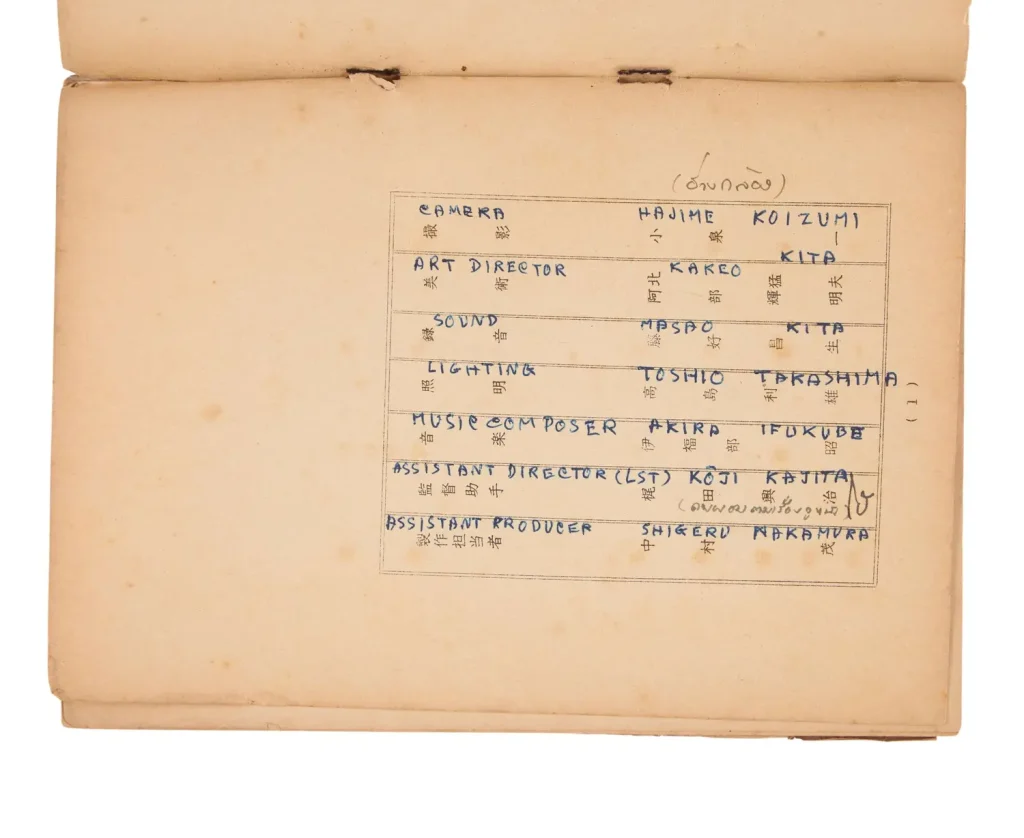 (ช่างกล้อง)
CAMERA HAJIME KOIZUMI
撮影 小泉一
KITA
ART DIRECTOR KAKEO
美術 北猛夫
阿部輝明
SOUND MASAO KITA
録音 藤好昌生
LIGHTING TOSHIO TAKASHIMA
照明 高島利雄
MUSIC COMPOSER AKIRA IFUKUBE
音楽 伊福部昭
ASSISTANT DIRECTOR (LST) KŌJI KAJITA
監督助手 梶田興治
ASSISTANT PRODUCER SHIGERU NAKAMURA
製作担当者 中村茂
(1)